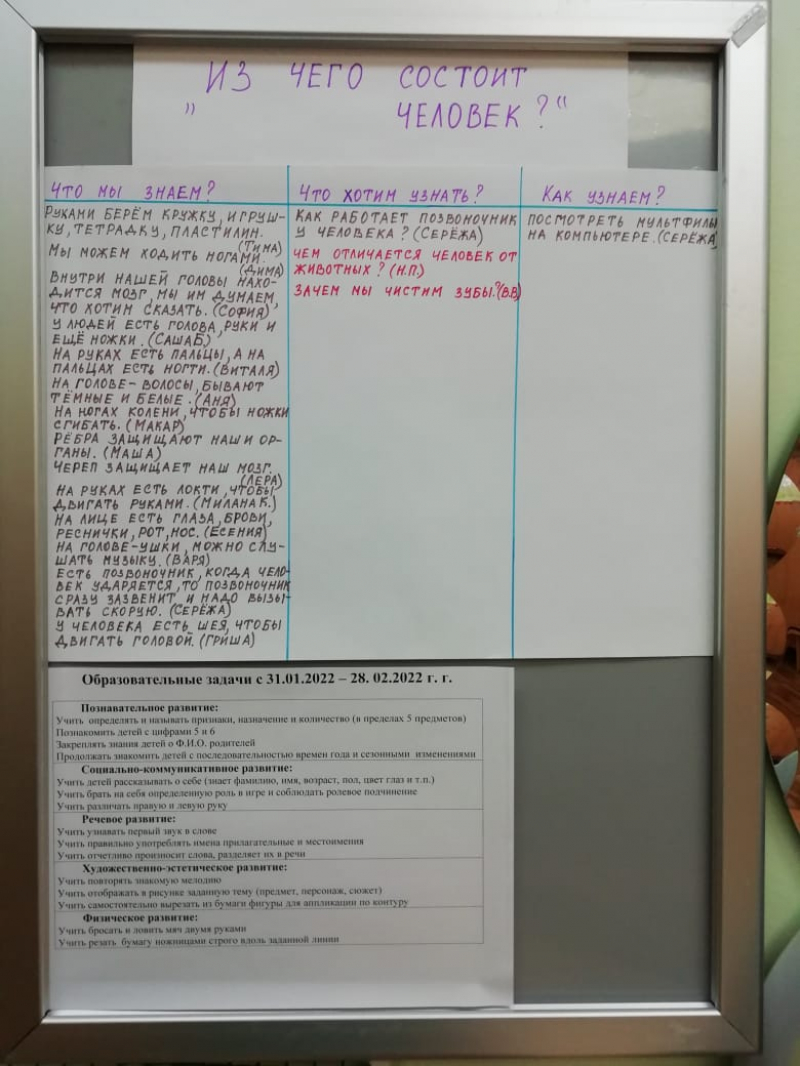 ИЗ ЧЕГО СОСТОИТ
" ЧЕЛОВЕК?"
ЧТО МЫ ЗНАЕМ?
РУКАМИ БЕРЁМ КРУЖКУ, ИГРУШ-
КУ, ТЕТРАДКУ, ПЛАСТИЛИН.
(ТИМА)
МЫ МОЖЕМ ХОДИТЬ НОГАМИ.
(ДИМА)
ВНУТРИ НАШЕЙ ГОЛОВЫ НАХО-
ДИТСЯ МОЗГ, МЫ ИМ ДУМАЕМ,
ЧТО ХОТИМ СКАЗАТЬ. (СОФИЯ)
У ЛЮДЕЙ ЕСТЬ ГОЛОВА, РУКИ И
ЕЩЁ НОЖКИ. (САША Б.)
НА РУКАХ ЕСТЬ ПАЛЬЦЫ, А НА
ПАЛЬЦАХ ЕСТЬ НОГТИ. (ВИТАЛЯ)
НА ГОЛОВЕ- ВОЛОСЫ, БЫВАЮТ
ТЁМНЫЕ И БЕЛЫЕ. (АНЯ)
НА НОГАХ КОЛЕНИ, ЧТОБЫ НОЖКИ
СГИБАТЬ. (МАКАР)
РЁБРА ЗАЩИЩАЮТ НАШИ ОР-
ГАНЫ. (МАША)
ЧЕРЕП ЗАЩИЩАЕТ НАШ МОЗГ.
(ЛЕРА)
НА РУКАХ ЕСТЬ ЛОКТИ, ЧТОБЫ
ДВИГАТЬ РУКАМИ. (МИЛАНА К.)
НА ЛИЦЕ ЕСТЬ ГЛАЗА, БРОВИ,
РЕСНИЧКИ, РОТ, НОС. (ЕСЕНИЯ)
НА ГОЛОВЕ-УШКИ, МОЖНО СЛУ-
ШАТЬ МУЗЫКУ. (ВАРЯ)
ЕСТЬ ПОЗВОНОЧНИК, КОГДА ЧЕЛО-
ВЕК УДАРЯЕТСЯ, ТО ПОЗВОНОЧНИК
СРАЗУ ЗАЗВЕНИТ И НАДО ВЫЗЫ-
ВАТЬ СКОРУЮ. (СЕРЁЖА)
У ЧЕЛОВЕКА ЕСТЬ ШЕЯ, ЧТОБЫ
ДВИГАТЬ ГОЛОВОЙ. (ГРИША)
ЧТО ХОТИМ УЗНАТЬ?
КАК РАБОТАЕТ ПОЗВОНОЧНИК
У ЧЕЛОВЕКА? (СЕРЁЖА)
ЧЕМ ОТЛИЧАЕТСЯ ЧЕЛОВЕК ОТ
ЖИВОТНЫХ? (Н.П.)
ЗАЧЕМ МЫ ЧИСТИМ ЗУБЫ? (В.В)
КАК УЗНАЕМ?
ПОСМОТРЕТЬ МУЛЬТФИЛЬМ
НА КОМПЬЮТЕРЕ. (СЕРЁЖА)
Образовательные задачи с 31.01.2022 – 28. 02.2022 г. г.
Познавательное развитие:
Учить определять и называть признаки, назначение и количество (в пределах 5 предметов)
Познакомить детей с цифрами 5 и 6
Закреплять знания детей о Ф.И.О. родителей
Продолжать знакомить детей с последовательностью времен года и сезонными изменениями
Социально-коммуникативное развитие:
Учить детей рассказывать о себе (знает фамилию, имя, возраст, пол, цвет глаз и т.п.)
Учить брать на себя определенную роль в игре и соблюдать ролевое подчинение
Учить различать правую и левую руку
Речевое развитие:
Учить узнавать первый звук в слове
Учить правильно употреблять имена прилагательные и местоимения
Учить отчетливо произносит слова, разделяет их в речи
Художественно-эстетическое развитие:
Учить повторять знакомую мелодию
Учить отображать в рисунке заданную тему (предмет, персонаж, сюжет)
Учить самостоятельно вырезать из бумаги фигуры для аппликации по контуру
Физическое развитие:
Учить бросать и ловить мяч двумя руками
Учить резать бумагу ножницами строго вдоль заданной линии